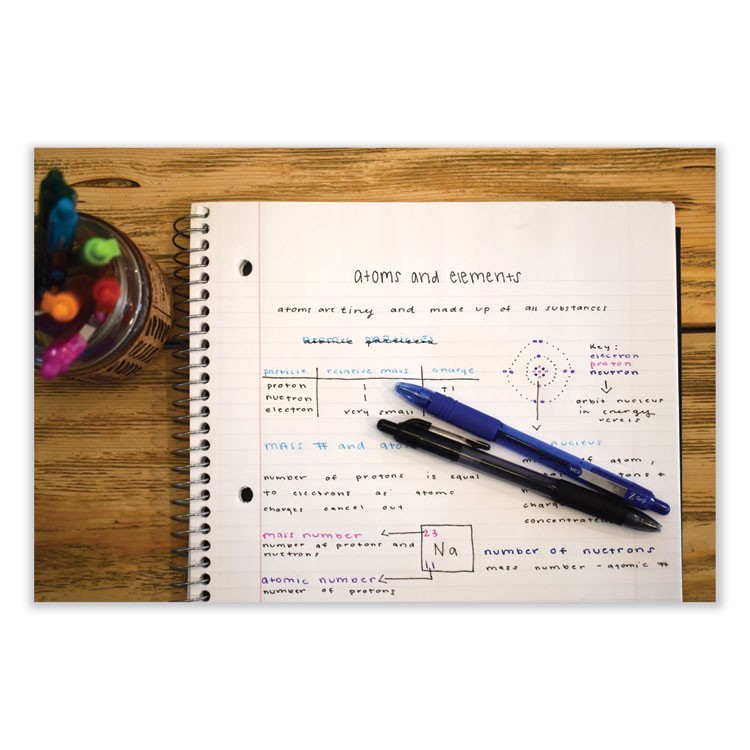 atoms and elements
atoms are tiny and made up of all substances
particle relative mass charge
proton 1 +1
nuetron 1
electron very small
Key:
electron
proton
neutron
orbit nucleus
in energy
MASS # and
nucleus
of atom,
number of protons is equal
to electrons as atoms
charges cancel out
mass number
number of protons and
nuetrons
23
Na
11
atomic number
number of protons
number of nuetrons
mass number - atomic #
MED
Z-Grip